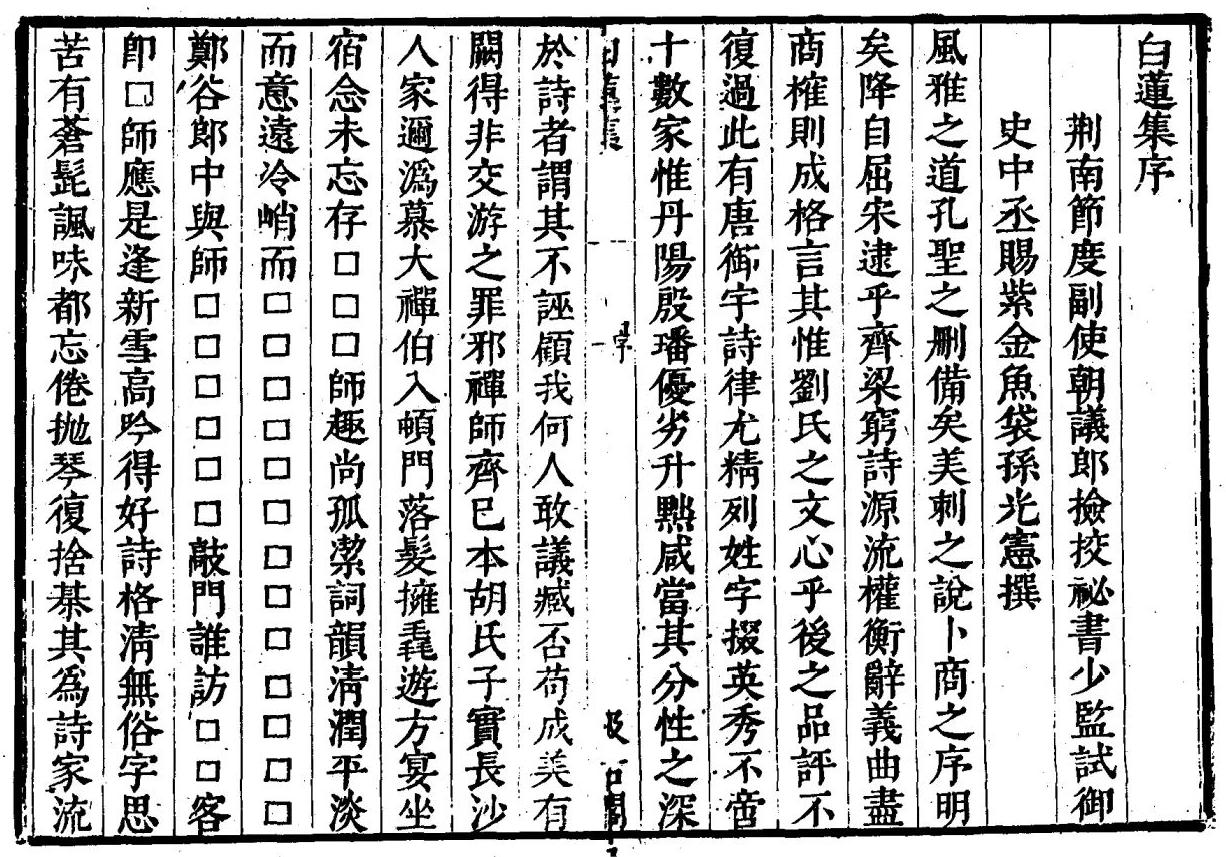 白蓮集序
荆南節度副使朝議郎撿挍祕書少監試御
史中丞賜紫金魚袋孫光憲撰
風雅之道孔聖之刪備矣美刺之說卜商之序明
矣降自屈宋逮乎齊梁窮詩源流權衡辭義曲盡
商榷則成格言其惟劉氏之文心乎後之品評不
復過此有唐御宇詩律尤精列姓字掇英秀不啻
十數家惟丹陽殷璠優劣升黜咸當其分性之深
於詩者謂其不誣顧我何人敢議臧否苟成美有
闕得非交游之罪邪禪師齊已本胡氏子實長沙
人家邇潙慕大禪伯入頓門落髮擁毳遊方宴坐
宿念未忘存□□□師趣尚孤潔詞韻清潤平淡
而意遠冷峭而□□□□□□□□□□□□□
鄭谷郎中與師□□□□□□敲門誰訪□□客
卽□師應是逢新雪高吟得好詩格清無俗字思
苦有蒼髭諷味都忘倦抛琴復捨棊其爲詩家流